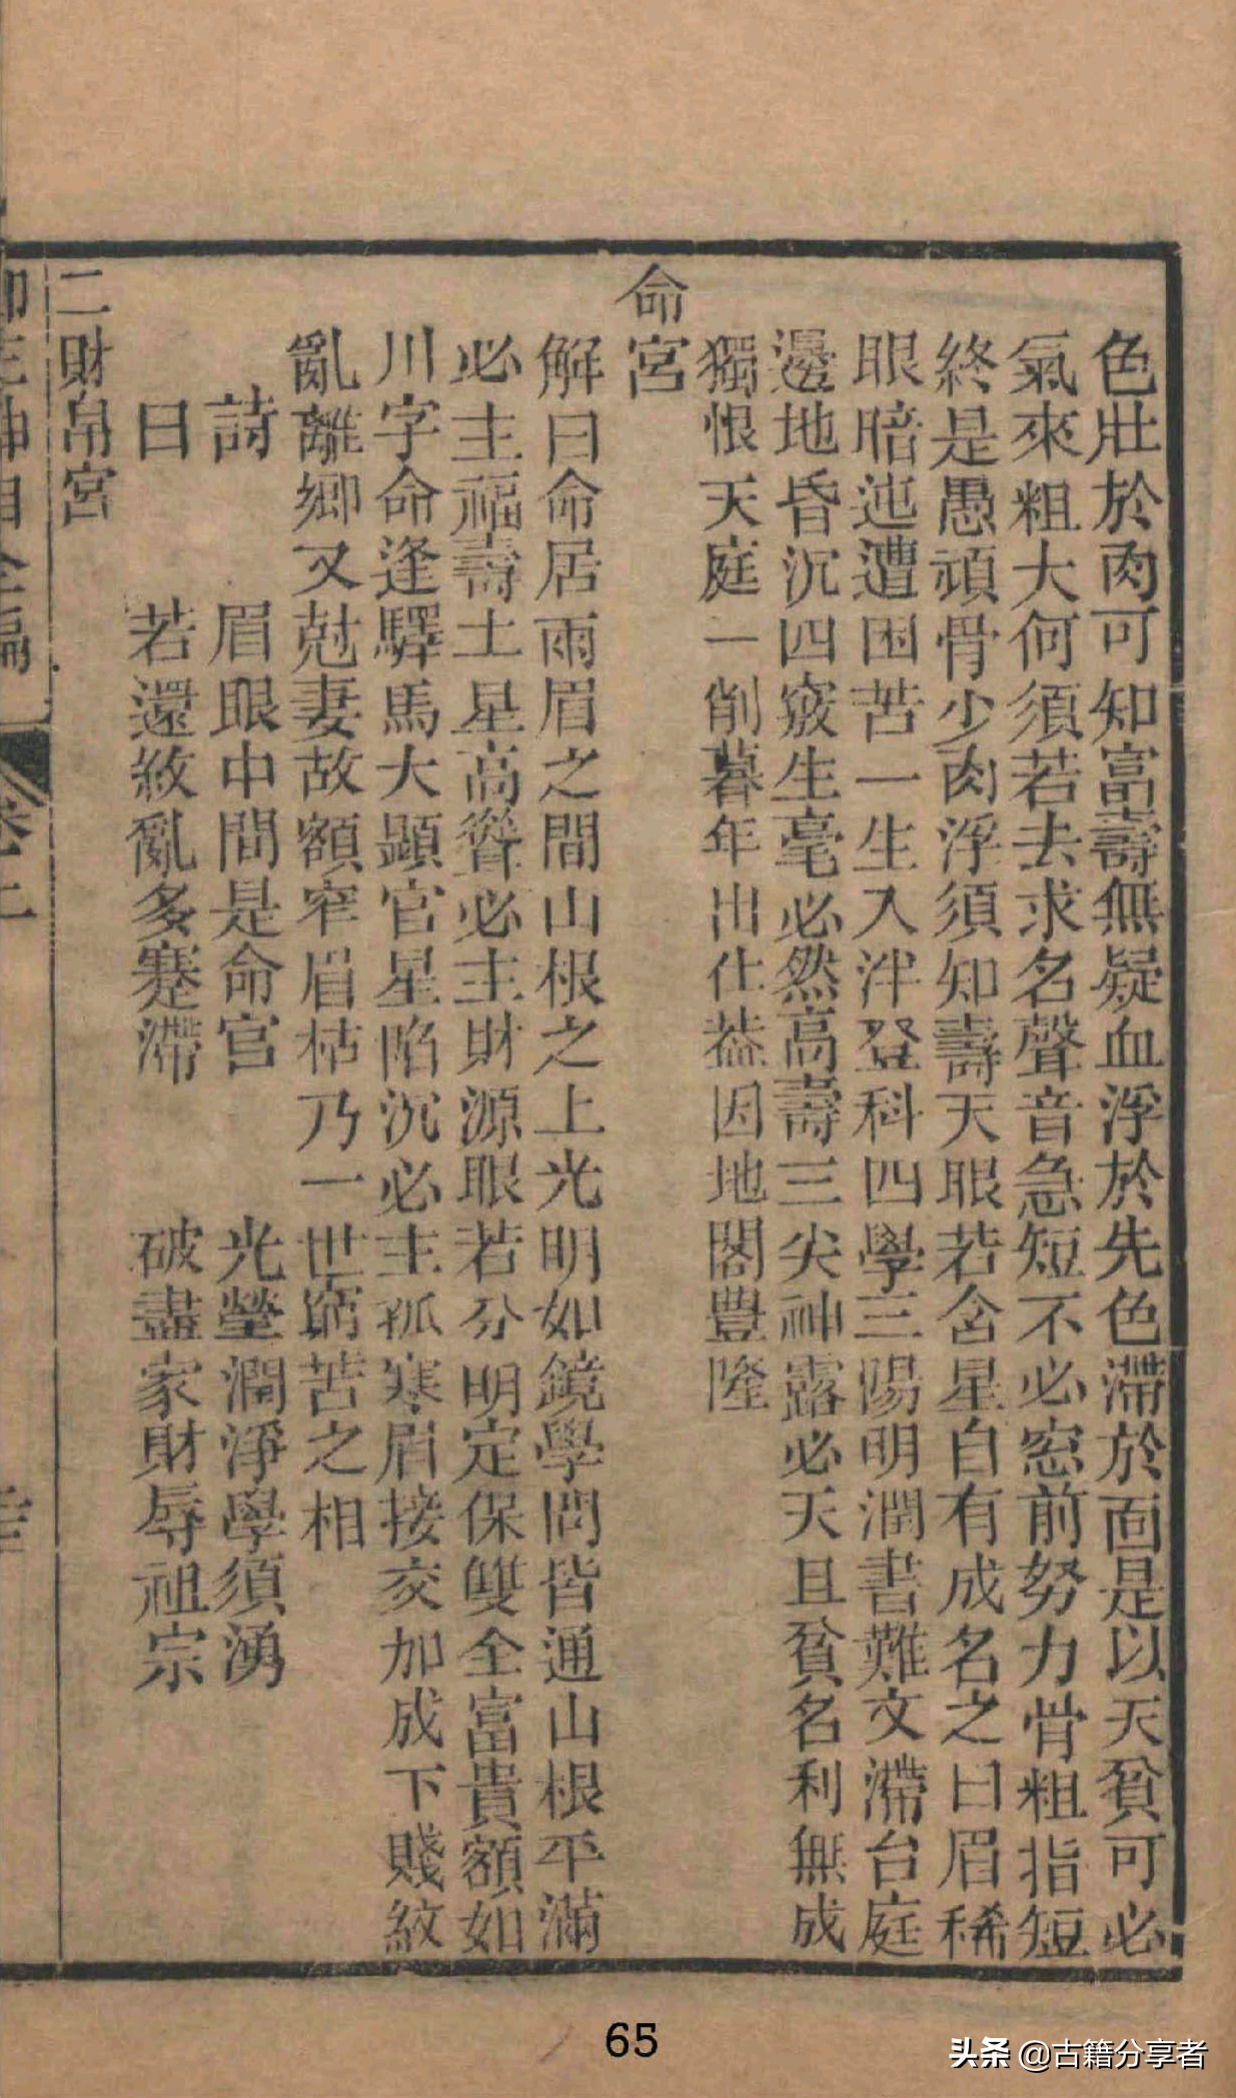 色壯於肉可知富壽無疑血浮於先色滯於面是以夭貧可必
氣來粗大何須若去求名聲音急短不必窓前努力骨粗指短
終是愚頑骨少肉浮須知壽夭眼若含星自有成名之曰眉稀
眼暗迍遭困苦一生入泮登科四學三陽明潤書難文滯台庭
邊地昏沉四竅生毫必然高壽三尖神露必夭且貧名利無成
獨恨天庭一削暮年出仕葢因地閣豐隆
命宮
解曰命居兩眉之間山根之上光明如鏡學問皆通山根平滿
必主福壽土星高聳必主財源眼若分明定保雙全富貴額如
川字命逢驛馬大顯官星陷沉必主孤寒眉接交加成下賤紋
亂離鄉又尅妻故額窄眉枯乃一世窮苦之相
詩 眉眼中間是命宮 光瑩潤淨學須湧
曰 若還紋亂多蹇滯 破盡家財辱祖宗
二財帛宮
65
头条 @古籍分享者